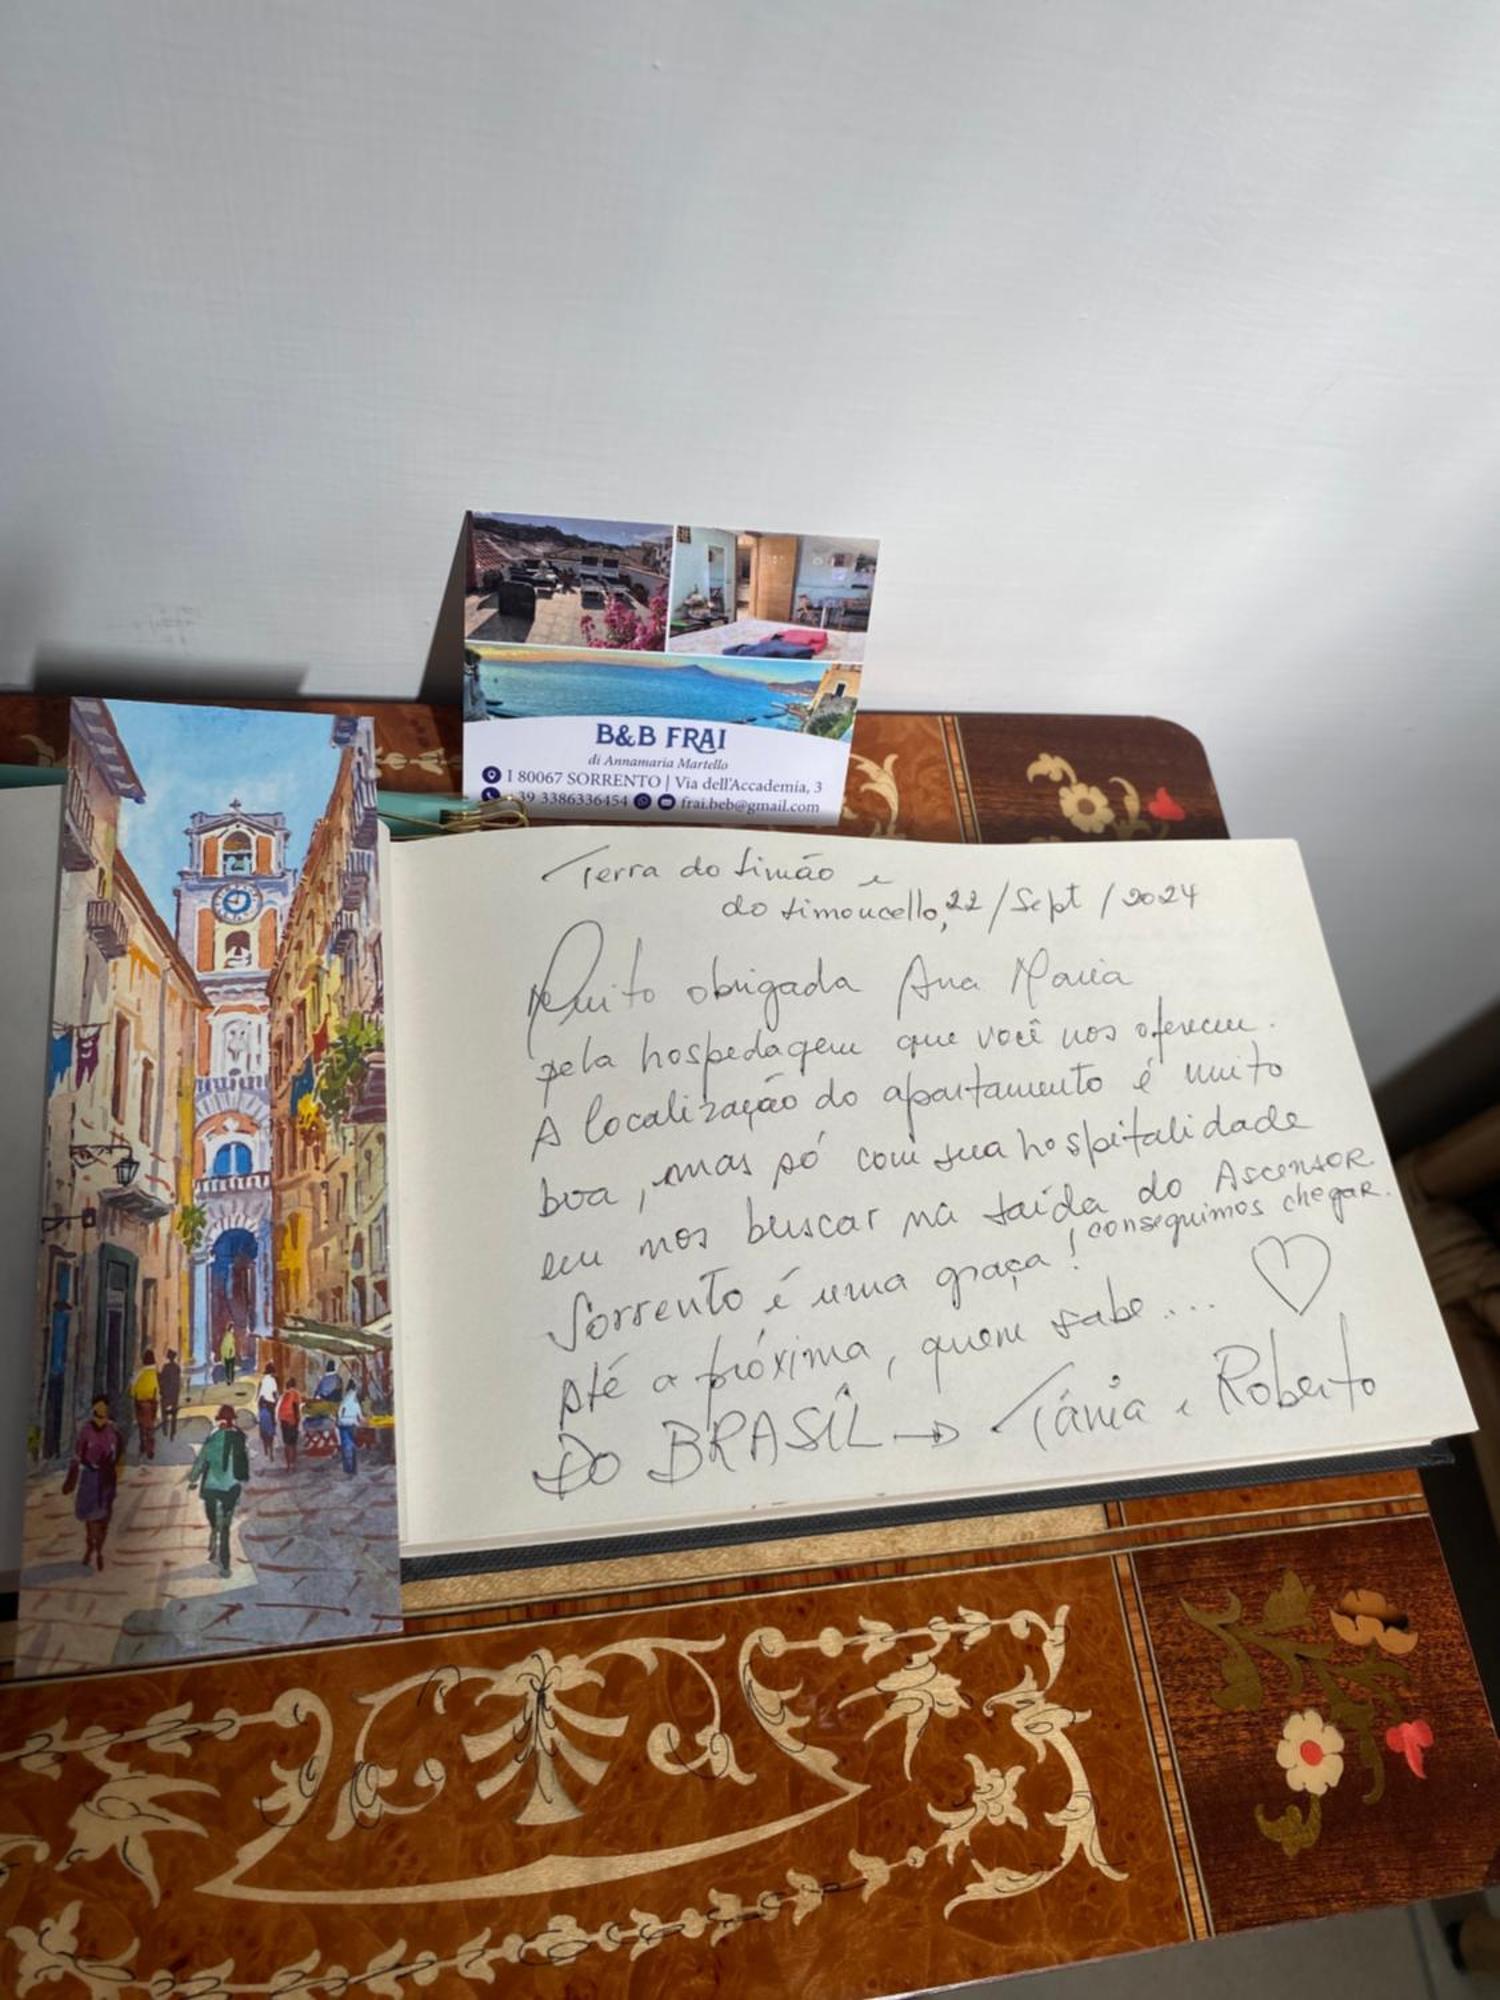 B&B FRAI
di Annamaria Martello
I 80067 SORRENTO | Via dell'Accademia, 3
39 3386336454 frai.beb@gmail.com
Terra do Limão e
do Limoncello, 22/Sept/2024
Muito obrigada Ana Maria
pela hospedagem que você nos ofereceu.
A localização do apartamento é muito
boa, mas só com sua hospitalidade
em nos buscar na saída do Ascensor
conseguimos chegar.
Sorrento é uma graça!
Até a próxima, quem sabe...
DO BRASIL → Tânia e Roberto